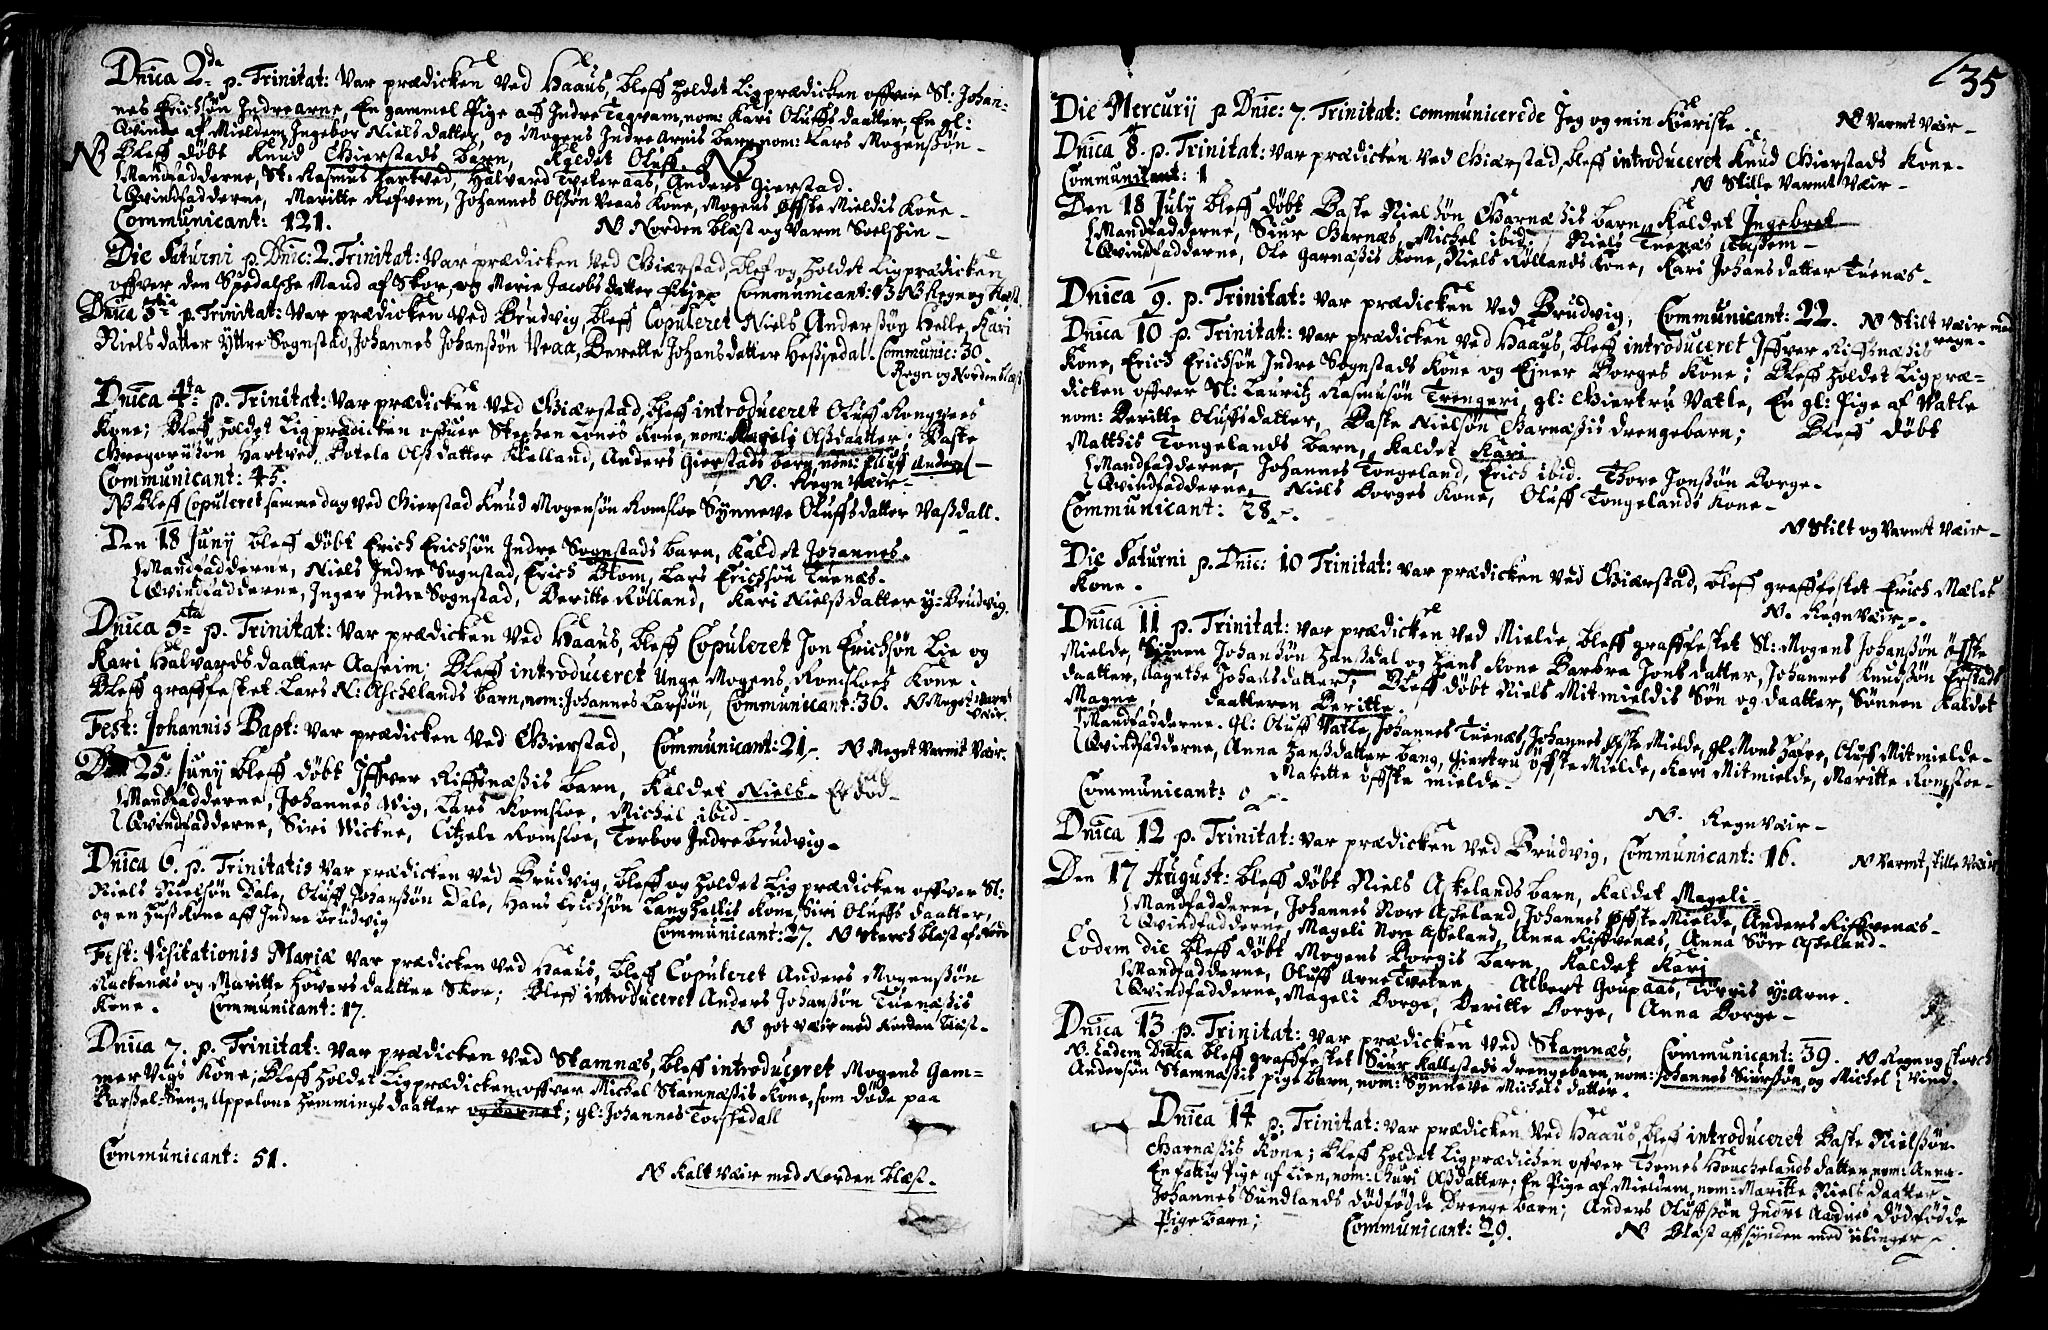 Dnica 2da p. Trinitat: Var prædicken Ved Haaus, bleff holdet Ligprædicken offver Sl: Johan-
nes Erichsøn Indre arne, En gammel Pige aff Indre Tagvam, nom: Kari Oluffs daatter, En gl:
Qvinde af Mieldem Ingebor Niels datter, og Mogens Indre Arnis barn nom: Lars Mogensøn -
NB Bleff døbt Knud Gierstads barn, Kaldet Oluff. NB
Mandfadderne, Sl: Rasmus Hartved, Halvard Tveteraas, Anders Gierstad.
Qvindfadderne, Maritte Refvem, Johannes Olsøn Veaas Kone, Mogens Øffste Mieldis Kone -
Communicant: 121. NB Norden blæst og Varm Soelshin -
Die Saturni p. Dnic: 2. Trinitat: Var prædicken Ved Giærstad, blef og holdet Ligprædicken
offver den Spedalsche Mand af Skor, og Merie Jacobs datter Communicant: 13 NB Regn og blæst
Dnica 3tia p. Trinitat: Var prædicken Ved Brudvig, bleff Copuleret Niels Andersøn Helle, Kari
Niels datter Yttre Sognstad, Johannes Johansøn Veaa, Berette Johans datter Hessjedal. Communic: 30.
Regn og Norden blæst
Dnica 4ta p. Trinitat: Var prædicken Ved Giærstad, bleff introduceret Oluff Rongves
Kone; Bleff holdet Ligprædicken offver Stephen Lones Kone, nom: Mageli Olsdaatter; Baste
Gregoriusøn Hartved, Botela Olsdatter Kielland, Anders Gierstads barn nom: Elluf Anders -
Communicant: 45. NB. Regn Væir -
NB Bleff Copuleret samme dag ved Gierstad Knud Mogensøn Romsloe Synneve Oluffsdatter Vassdall.
Den 18 Juny bleff døbt Erich Erichsøn Indre Sognstads barn, Kaldet Johannes.
Mandfadderne, Niels Indre Sognstad, Erich Blom, Lars Erichsøn Tuenæs.
Qvindfadderne, Inger Indre Sognstad, Beritte Rølland, Kari Nielss datter y: Brudvig.
Dnica 5ta p. Trinitat: Var prædicken Ved Haaus, bleff Copuleret Jon Erichsøn Lie og
Kari Halvards daatter Aaseim; Bleff introduceret Unge Mogens Romsloes Kone -
Bleff graffesket Lars N: Aschelands barn, nom: Johannes Larssøn, Communicant: 36. NB Meget Varmt
Væir.
Fest: Johannis Bapt: Var prædicken Ved Gierstad, Communicant: 21. NB Meget Varmt Væir.
Den 25. Juny bleff døbt Iffver Riffsnæsis barn, Kaldet Niels. Er død -
Mandfadderne, Johannes Vig, Lars Romsloe, Michel ibid -
Qvindfadderne, Siri Wickne, Citzele Romsloe, Torbor Indre Brudvig -
Dnica 6. p. Trinitatis var prædicken ved Brudvig, bleff og holdet Ligprædicken offver Sl:
Niels Juelsøn Dale, Oluff Johanssøn Dale, Hans Erichsøn Langhellis Kone, Siri Oluffs daatter,
og en Huss Kone aff Indre Brudvig Communicant: 27. NB Sterch blæst af
Fest: Visitationis Mariæ var prædicken ved Haaus, bleff Copuleret Anders Mogenssøn
Rackenæs og Maritte Hovers daatter Skor; Bleff introduceret Anders Johanssøn Tuenæsis
Kone. Communicant: 17.
NB got væir med Norden blæst -
Dnica 7. p. Trinitat: Var prædicken ved Stamnæs, bleff introduceret Mogens Gam=
mer Vigs Kone; Bleff holdet Ligprædicken offver Michel Stamnæssis Kone, som døde paa
Barssel-Seng, Appelone Hemmings daatter og barnet; gl: Johannes Torskedall
Communicant: 51.
NB Kalt væir med Norden blæst.
135
Die Mercurij p Dnic: 7. Trinitat: communicerede Jeg og min Kieriste. NB Varmt Væir -
Dnica 8. p. Trinitat: Var prædicken Ved Giærstad, bleff introduceret Knud Gierstads Kone.
Communicant: 1. NB Stille Varmt Væir -
Den 18 July bleff døbt Baste Nielsøn Garnæsis barn, Kaldet Ingebret
Mandfadderne, Siur Garnæs, Michel ibid: Niels Tuenæs
Qvindfadderne, Ole Garnæsis Kone, Niels Røllands Kone, Kari Johansdatter Tuenæs -
Dnica 9. p. Trinitat: Var prædicken Ved Brudvig, Communicant: 22. NB Stilt væir med
regn -
Dnica 10 p. Trinitat: Var prædicken ved Haaus, bleff introduceret Iffver Riffsnæsis
Kone, Erich Erichsøn Indre Sognstads Kone og Ejner Borges Kone; Bleff holdet Ligpræ=
dicken offver Sl: Lauritz Rasmusøn Trengeri, gl: Giertru Vatle, En gl: Pige af Vatle
nom: Beritte Oluffsdatter, Baste Nielsøn Garnæssis drengebarn; Bleff døbt
Matthis Tongelands barn, Kaldet Kari
Mandfadderne, Johannes Tongeland, Erich ibid. Thore Jonssøn Borge -
Qvindfadderne, Niels Borges Kone, Oluff Tongelands Kone -
Communicant: 28.
NB Stilt og Varmt Væir -
Die Saturni p. Dnic: 10 Trinitat: var prædicken ved Giærstad, bleff graffestet Erich Mæles
Kone - NB. Regn Væir.
Dnica 11 p. Trinitat: Var prædicken Ved Mielde, bleff graffestet Sl: Mogens Johanssøn öffste
Mielde, Simen Johanssøn Hanssdal og Hans Kone Barbra Jons datter, Johannes Knudssøn Erstads
daatter, Aagethe Johansdatter; Bleff døbt Niels Mitmieldis Søn og daatter, Sønnen Kaldet
Magne, daatteren Beritte.
Mandfadderne. gl: Oluff Vatle, Johannes Tuenæs, Johannes öfste Mielde, gl: Mons Hafre, Oluff Mitmielde -
Qvindfadderne, Anna Hanssdatter Bang, Giertru öffste Mielde, Kari Mitmielde, Maritte Romsloe -
Maritte öffste mielde -
Communicant: 0
NB. Regn Væir -
Dnica 12 p. Trinitat: Var prædicken ved Brudvig, Communicant: 16. NB Varmt, stille Væir
Den 17 August: bleff døbt Niels Askelands barn, Kaldet Mageli -
Mandfadderne, Johannes Nore Askeland, Johannes öfste Mielde, Anders Riffvenæs -
Qvindfadderne, Mageli Nore Askeland, Anna Riffvenæs, Anna Søre Askeland -
Eodem die bleff døbt Mogens Borgis barn, Kaldet Kari
Mandfadderne, Oluff Arne Tveten, Albert Goupaas, Törris y: Arne.
Qvindfadderne, Mageli Borge, Beritte Borge, Anna Borge -
Dnica 13 p. Trinitat: Var prædicken Ved Stamnæs, Communicant: 39. NB Regn og sterch
N. Eadem Dnica bleff graffestet Siur Kallestads drengebarn, nom: Johannes Siurssøn, og Michel Vind.
Andersøn Stamnæssis pige barn, nom: Synneve Michels datter.
Dnica 14 p. Trinitat: Var prædicken Ved Haaus, bleff introduceret Baste Nielssøn
Garnæssis Kone; Bleff holdet Ligprædicken offver Thomes Houchelands datter, nom: Anna.
En fattig Pige af Lien, nom: Guri Olssdatter; En Pige af Mieldem, nom: Maritte Niels daatter -
Johannes Sundlands dødfødde Drenge barn; Anders Oluffssøn Indre Aadnes dødfødde
Pige barn; Communicant: 29. NB Blæst aff synden med